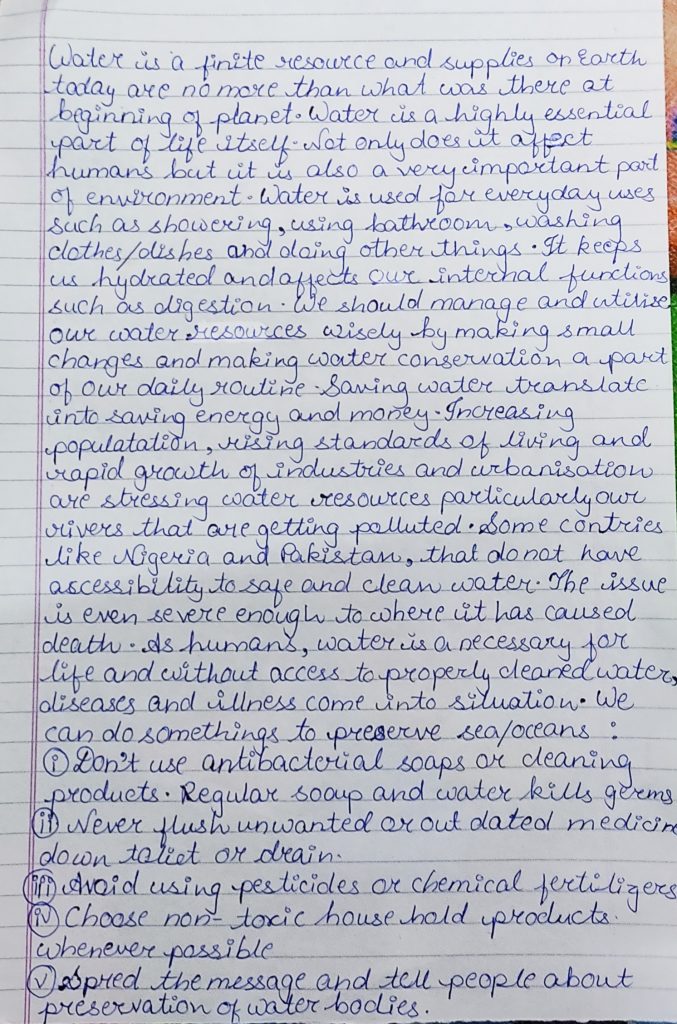 Water is a finite resource and supplies on Earth
today are no more than what was there at
beginning of planet. Water is a highly essential
part of life itself. Not only does it affect
humans but it is also a very important part
of environment. Water is used for everyday uses
such as showering, using bathroom, washing
clothes/dishes and doing other things. It keeps
us hydrated and affects our internal functions
such as digestion. We should manage and utilise
our water resources wisely by making small
changes and making water conservation a part
of our daily routine. Saving water translate
into saving energy and money. Increasing
populatation, rising standards of living and
rapid growth of industries and urbanisation
are stressing water resources particularly our
rivers that are getting polluted. Some contries
like Nigeria and Pakistan, that do not have
ascessibility to safe and clean water. The issue
is even severe enough to where it has caused
death. As humans, water is a necessary for
life and without access to properly cleaned water,
diseases and illness come into situation. We
can do somethings to preserve sea/oceans :
(i) Don't use antibacterial soaps or cleaning
products. Regular soap and water kills germs
(ii) Never flush unwanted or out dated medicin
down toliet or drain.
(iii) Avoid using pesticides or chemical fertilizers
(iv) Choose non-toxic household products.
whenever possible
(v) Spred the message and tell people about
preservation of water bodies.